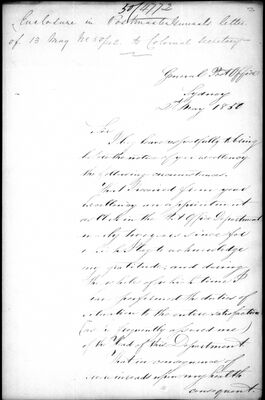 50/4772
Enclosure in Postmaster Generals letter
of 13 May No 50/42 to Colonial Secretary
General Post Office
Sydney
May 1850
Sir
I beg leave respectfully to bring
before the notice of your excellency
the following circumstances.
That I received from your
excellency an appointment
as Clerk in the Post Office Department
nearly two years since for
which I beg to acknowledge
my gratitude, and during
the whole of which time I
have performed the duties of
situation to the entire satisfaction
(as is frequently assured me)
of the Head of this Department
That in consequence of
inroads upon my health
consequent